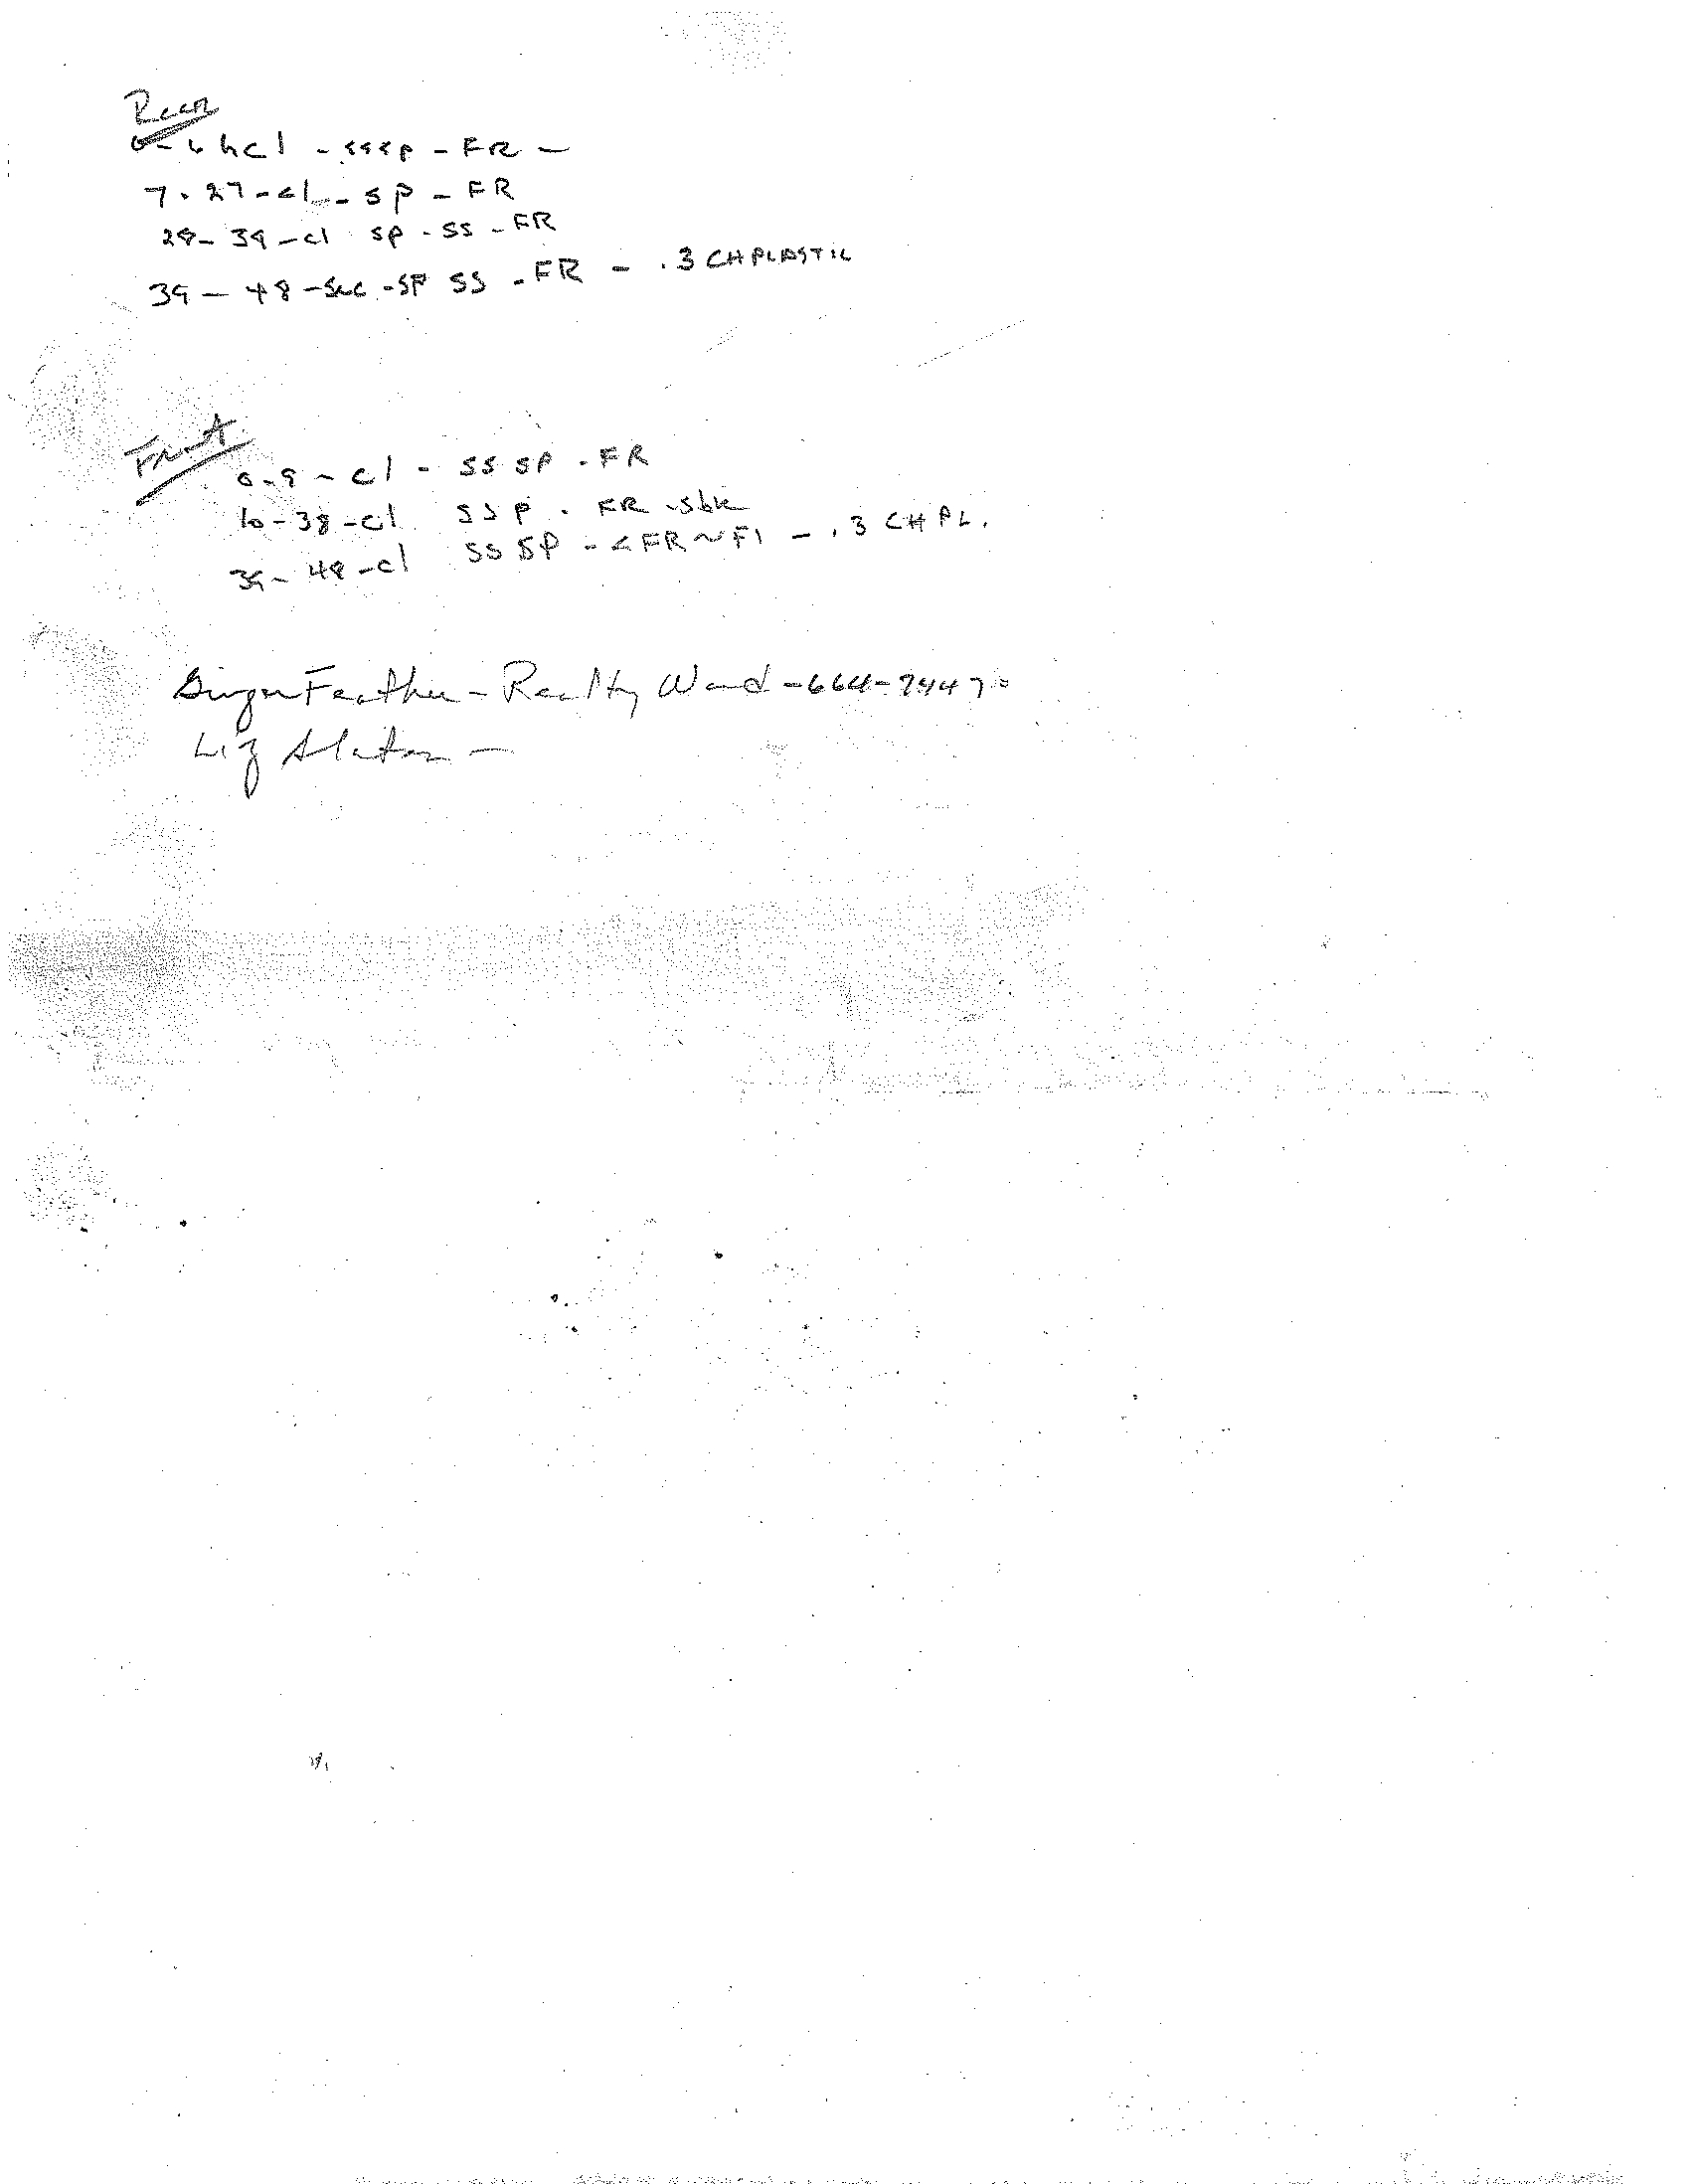 Rear
0-6 hcl - SSSP - FR -
7-27-cl - SP - FR
28-39-cl SP-SS-FR
39-48-scc-SP SS-FR - .3 CHPLASTIC
Front
0-9-cl-SS SP-FR
10-38-cl SSP. FR-sbk
39-48-cl SS SP - < FR ~ FI - .3 CHPL.
Ginger Feather - Realty World - 664-7447
Liz Slaton -